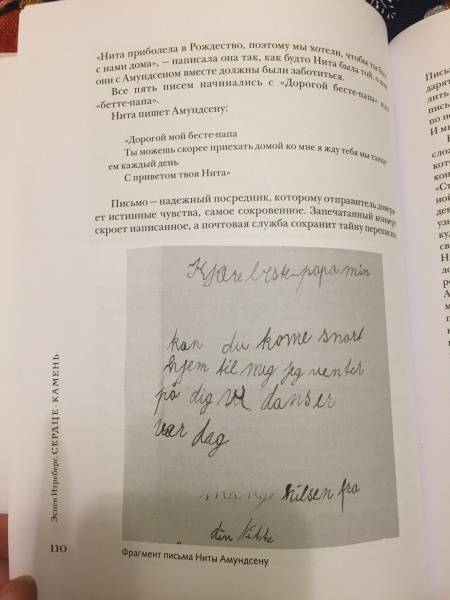 «Нита приболела в Рождество, поэтому мы хотели, чтобы ты был
с нами дома», — написала она так, как будто Нита была той, о ком
они с Амундсеном вместе должны были заботиться.
Все пять писем начинались с «Дорогой бесте-папа» или
«бетте-папа».
Нита пишет Амундсену:
«Дорогой мой бесте-папа
Ты можешь скорее приехать домой ко мне я жду тебя мы танцу-
ем каждый день
С приветом твоя Нита»
Письмо — надежный посредник, которому отправитель доверя-
ет истинные чувства, самое сокровенное. Запечатанный конверт
скроет написанное, а почтовая служба сохранит тайну переписки.
Kjære beste-papa min
kan du kome snart
hjem til meg jeg venter
på dig vi danser
vær dag
mange hilsen fra
din
Фрагмент письма Ниты Амундсену
110
Эспен Итреберг. СЕРДЦЕ-КАМЕНЬ